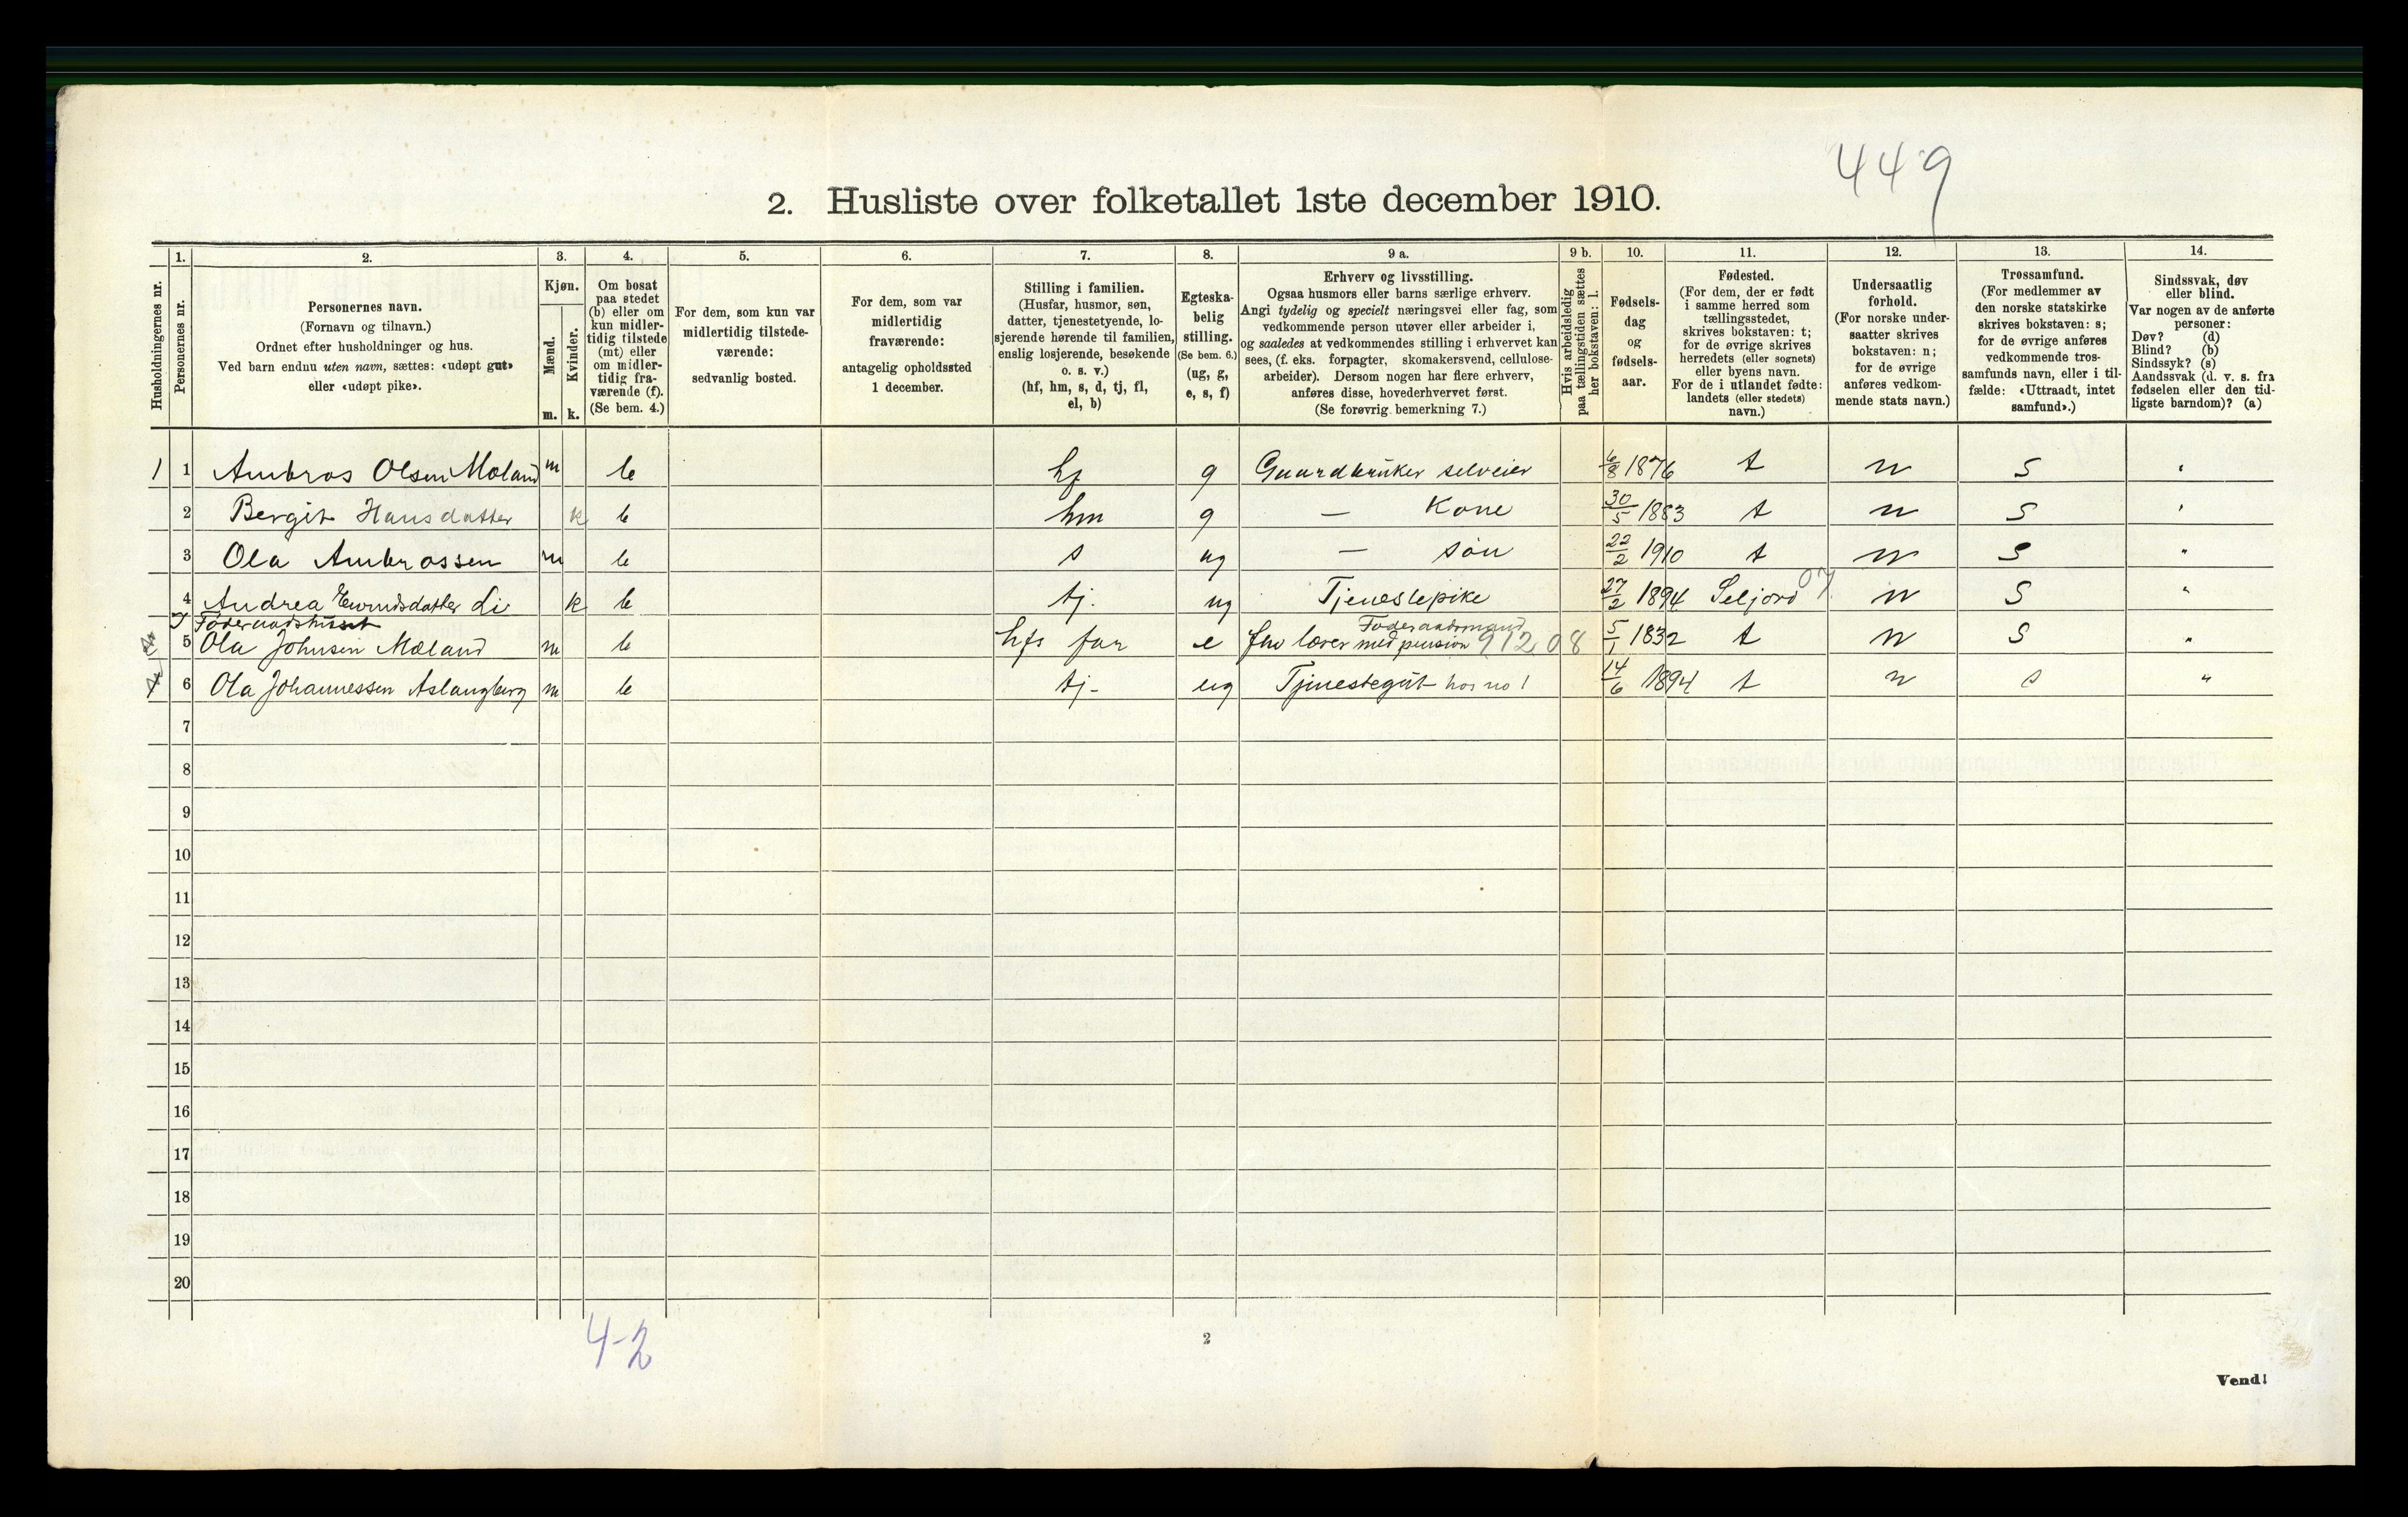 449
2. Husliste over folketallet 1ste december 1910.
Husholdningernes nr.
1.
Personernes nr.
2.
Personernes navn.
(Fornavn og tilnavn.)
Ordnet efter husholdninger og hus.
Ved barn endnu uten navn, sættes: «udøpt gut»
eller «udøpt pike».
3.
Kjøn.
Mænd.
Kvinder.
m. k.
4.
Om bosat
paa stedet
(b) eller om
kun midler-
tidig tilstede
(mt) eller
om midler-
tidig fra-
værende (f).
(Se bem. 4.)
5.
For dem, som kun var
midlertidig tilstede-
værende:
sedvanlig bosted.
6.
For dem, som var
midlertidig
fraværende:
antagelig opholdssted
1 december.
7.
Stilling i familien.
(Husfar, husmor, søn,
datter, tjenestetyende, lo-
sjerende hørende til familien,
enslig losjerende, besøkende
o. s. v.)
(hf, hm, s, d, tj, fl,
el, b)
8.
Egteska-
belig
stilling.
(Se bem. 6.)
(ug, g,
e, s, f)
9 a.
Erhverv og livsstilling.
Ogsaa husmors eller barns særlige erhverv.
Angi tydelig og specielt næringsvei eller fag, som
vedkommende person utøver eller arbeider i,
og saaledes at vedkommendes stilling i erhvervet kan
sees, (f. eks. forpagter, skomakersvend, cellulose-
arbeider). Dersom nogen har flere erhverv,
anføres disse, hovederhvervet først.
(Se forøvrig bemerkning 7.)
9 b.
Hvis arbeidsledig
paa tællingstiden sættes
her bokstaven: l.
10.
Fødsels-
dag
og
fødsels-
aar.
11.
Fødested.
(For dem, der er født
i samme herred som
tællingsstedet,
skrives bokstaven: t;
for de øvrige skrives
herredets (eller sognets)
eller byens navn.
For de i utlandet fødte:
landets (eller stedets)
navn.)
12.
Undersaatlig
forhold.
(For norske under-
saatter skrives
bokstaven: n;
for de øvrige
anføres vedkom-
mende stats navn.)
13.
Trossamfund.
(For medlemmer av
den norske statskirke
skrives bokstaven: s;
for de øvrige anføres
vedkommende tros-
samfunds navn, eller i til-
fælde: «Uttraadt, intet
samfund».)
14.
Sindssvak, døv
eller blind.
Var nogen av de anførte
personer:
Døv? (d)
Blind? (b)
Sindssyk? (s)
Aandssvak (d. v. s. fra
fødselen eller den tid-
ligste barndom)? (a)
1 1 Ambros Olsen Moland m b hf g Gaardbruker selveier 6/8 1876 t n s "
2 Bergit Hansdatter k b hm g — Kone 30/5 1883 t n s "
3 Ola Ambrossen m b s ug — søn 22/2 1910 t n s "
4 Andrea Li k b tj. ug Tjenestepike 27/2 1894 Seljord 07 n s "
I Føderaadshuset
2 5 Ola Johnsen Moland m b hfs far e Føderaadsmand fhv lærer med pension 912.08 5/1 1832 t n s "
6 Ola Johannessen Aslangberg m b tj- ug Tjenestegut hos no 1 14/6 1894 t n s "
7
8
9
10
11
12
13
14
15
16
17
18
19
20
4-2
2
Vend!